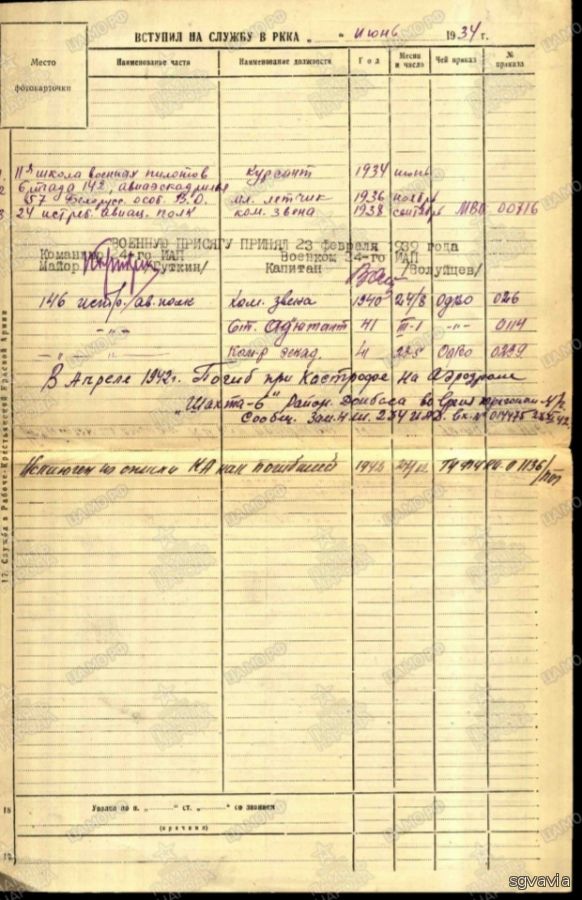 ВСТУПИЛ НА СЛУЖБУ В РККА „ “ июнь 1934 г.
Место фотокарточки
Наименование части
Наименование должности
Год
Месяц и число
Чей приказ
№ приказа
1. 11я школа военных пилотов Курсант 1934 июнь
2 142, авиаэскадрилья
Белорус. особ. В.О. мл. летчик 1936 ноябрь
3 24 истреб. авиац. полк ком. звена 1938 сентябрь МВО 00716
ВОЕННУЮ ПРИСЯГУ ПРИНЯЛ 23 февраля 1939 года
Командир 24-го ИАП Военком 24-го ИАП
Майор /Гуткин/ Капитан /Волуйцев/
146 истр. ав. полк Ком. звена 1940 24/8 ОдВО 026
-"- Ст. Адъютант 41 III-1 -"- 0114
-"- Ком-р эскад. 41 ОдВО 0239
В Апреле 1942г. Погиб при Катастрофе на Аэродроме
"Шахта-6" Район Донбаса во время
Сообщ. Зам. Н Ш. 254 ИАП. вх. №
Исключен из списков КА как погибший 1946 ГУФ 01136/
17. Служба в Рабоче-Крестьянской Красной Армии
18 Уволен по п. „ “ ст. „ “ со званием
(причина)
19
ЦАМО РФ
ПАМЯТЬ НАРОДА
sgvavia